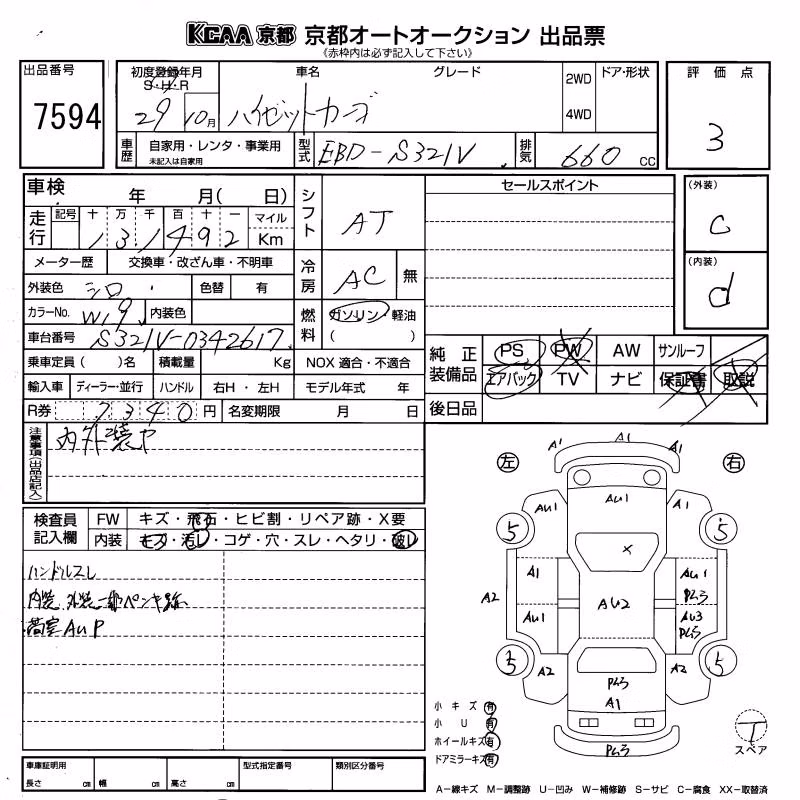 KCAA 京都 京都オートオークション 出品票
(赤枠内は必ず記入して下さい)
出品番号
7594
初度登録年月
S・H・R
29 10月
車名
ハイゼットカーゴ
グレード
2WD
4WD
ドア・形状
評価点
3
車歴
自家用・レンタ・事業用
未記入は自家用
型式
EBD-S321V
排気
660 CC
車検 年 月( 日)
走行
記号 十 万 千 百 十 一
131492
マイル
Km
シフト
AT
セールスポイント
(外装)
C
(内装)
d
メーター歴 交換車・改ざん車・不明車
冷房
AC 無
外装色 シロ 色替 有
カラーNo. W19 内装色
燃料
ガソリン・軽油
( )
車台番号 S321V-0342617
純正装備品
PS PW AW サンルーフ
エアバック TV ナビ 保証書 取説
乗車定員( )名 積載量 Kg NOX 適合・不適合
輸入車 ディーラー・並行 ハンドル 右H・左H モデル年式 年
R券 7340円 名変期限 月 日
後日品
注意事項(出品店記入)
内外装ヤ
検査員記入欄
FW キズ・飛石・ヒビ割・リペア跡・X要
内装 キズ・汚し・コゲ・穴・スレ・ヘタリ・破レ
ハンドルスレ
内装、外装一部ペンキ跡
荷室AuP
左
右
A1 A1 A1
Au1 Au1 A1
5 5
X
A1 Au1
Pムラ
A2 Au2
Au1 Au3
Pムラ
5 5
A2 A2
Pムラ
A1
Pムラ
小キズ 有
小U 有
ホイールキズ 有
ドアミラーキズ 有
T
スペア
車庫証明用
長さ cm 幅 cm 高さ cm
型式指定番号
類別区分番号
A-線キズ M-調整跡 U-凹み W-補修跡 S-サビ C-腐食 XX-取替済